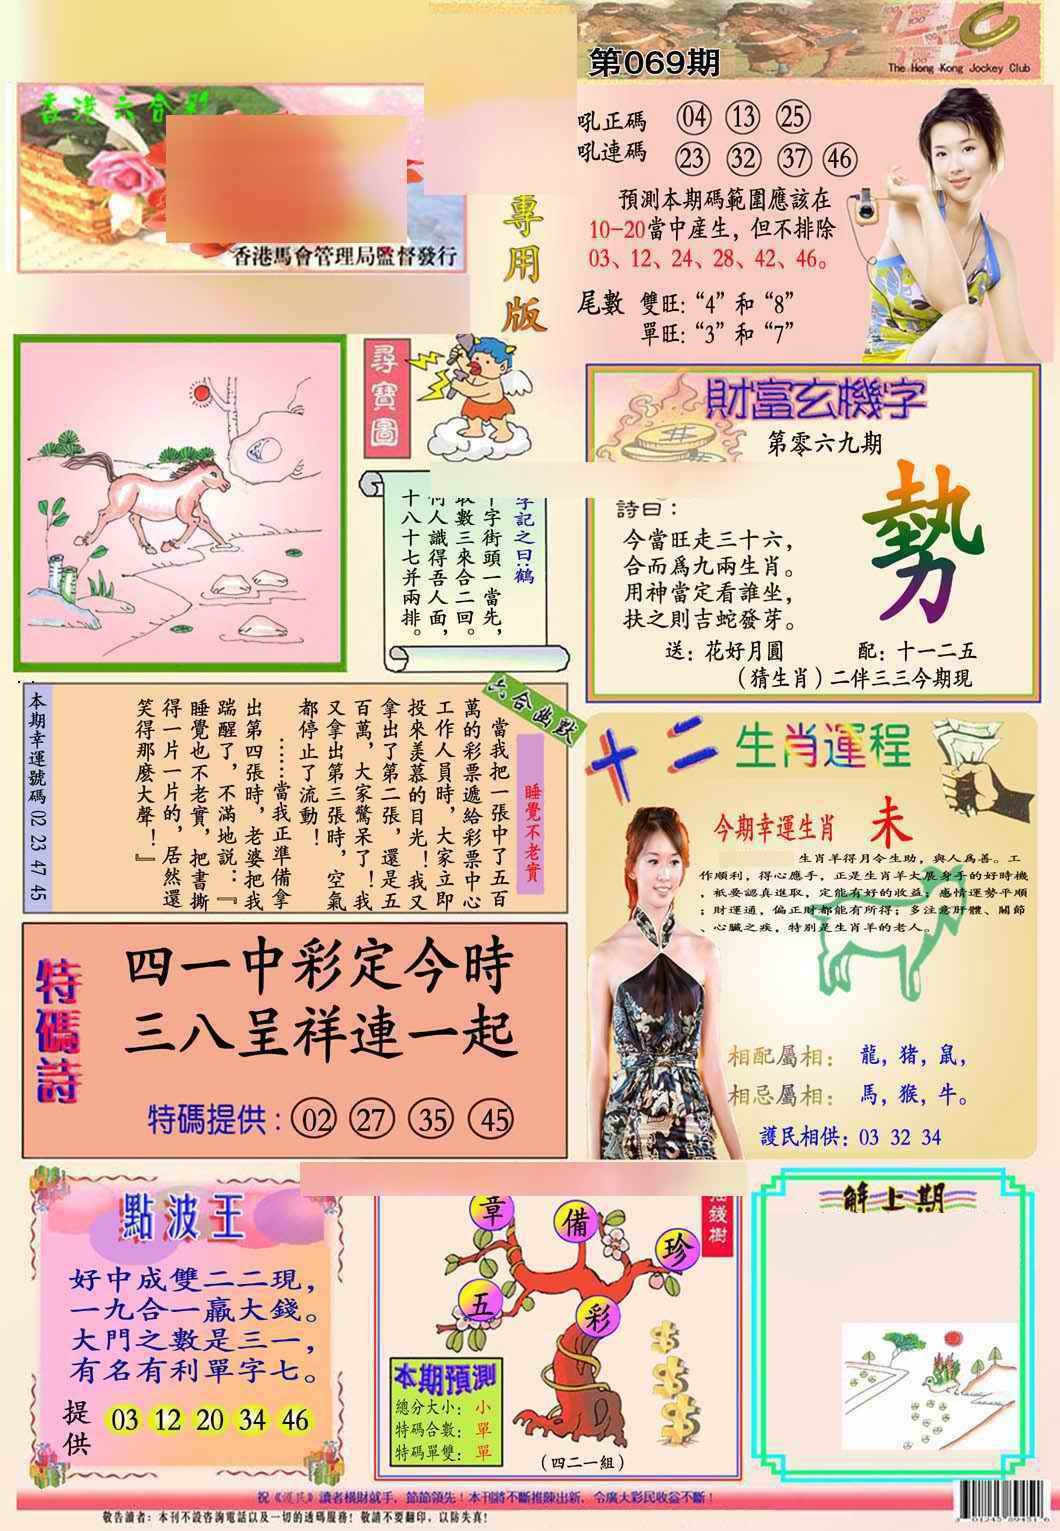 第069期
The Hong Kong Jockey Club
香港六合彩
香港馬會管理局監督發行
專用版
吼正碼 04 13 25
吼連碼 23 32 37 46
預測本期碼範圍應該在
10-20當中產生，但不排除
03、12、24、28、42、46。
尾數 雙旺:“4”和“8”
單旺:“3”和“7”
尋寶圖
字記之曰:鶴
十字街頭一當先，
取數三來合二回。
何人識得吾人面，
十八十七并兩排。
財富玄機字
第零六九期
詩曰：
今當旺走三十六，
合而爲九兩生肖。
用神當定看誰坐，
扶之則吉蛇發芽。
勢
送：花好月圓 配：十一二五
（猜生肖）二伴三三今期現
六合幽默
睡覺不老實
當我把一張中了五百
萬的彩票遞給彩票中心
工作人員時，大家立即
投來羨慕的目光！我又
拿出了第二張，還是五
百萬，大家驚呆了！我
又拿出第三張時，空氣
都停止了流動！
……當我正準備拿
出第四張時，老婆把我
踹醒了，不滿地説：『
睡覺也不老實，把書撕
得一片一片的，居然還
笑得那麽大聲！』
本期幸運號碼 02 23 47 45
十二生肖運程
今期幸運生肖 未
生肖羊得月令生助，與人爲善。工
作順利，得心應手，正是生肖羊大展身手的好時機
，祇要認真進取，定能有好的收益；感情運勢平順
；財運通，偏正財都能有所得；多注意肝體、關節
、心臟之疾，特別是生肖羊的老人。
相配屬相： 龍，豬，鼠，
相忌屬相： 馬，猴，牛。
護民相供：03 32 34
特碼詩
四一中彩定今時
三八呈祥連一起
特碼提供：02 27 35 45
點波王
好中成雙二二現，
一九合一贏大錢。
大門之數是三一，
有名有利單字七。
提供 03 12 20 34 46
錢樹
章
備
珍
五
彩
本期預測
總分大小：小
特碼合數：單
特碼單雙：單
（四二一組）
解上期
祝《護民》讀者橫財就手，節節領先！本刊將不斷推陳出新，令廣大彩民收益不斷！
敬告讀者：本刊不設咨詢電話以及一切的透碼服務！敬請不要翻印，以防失真！